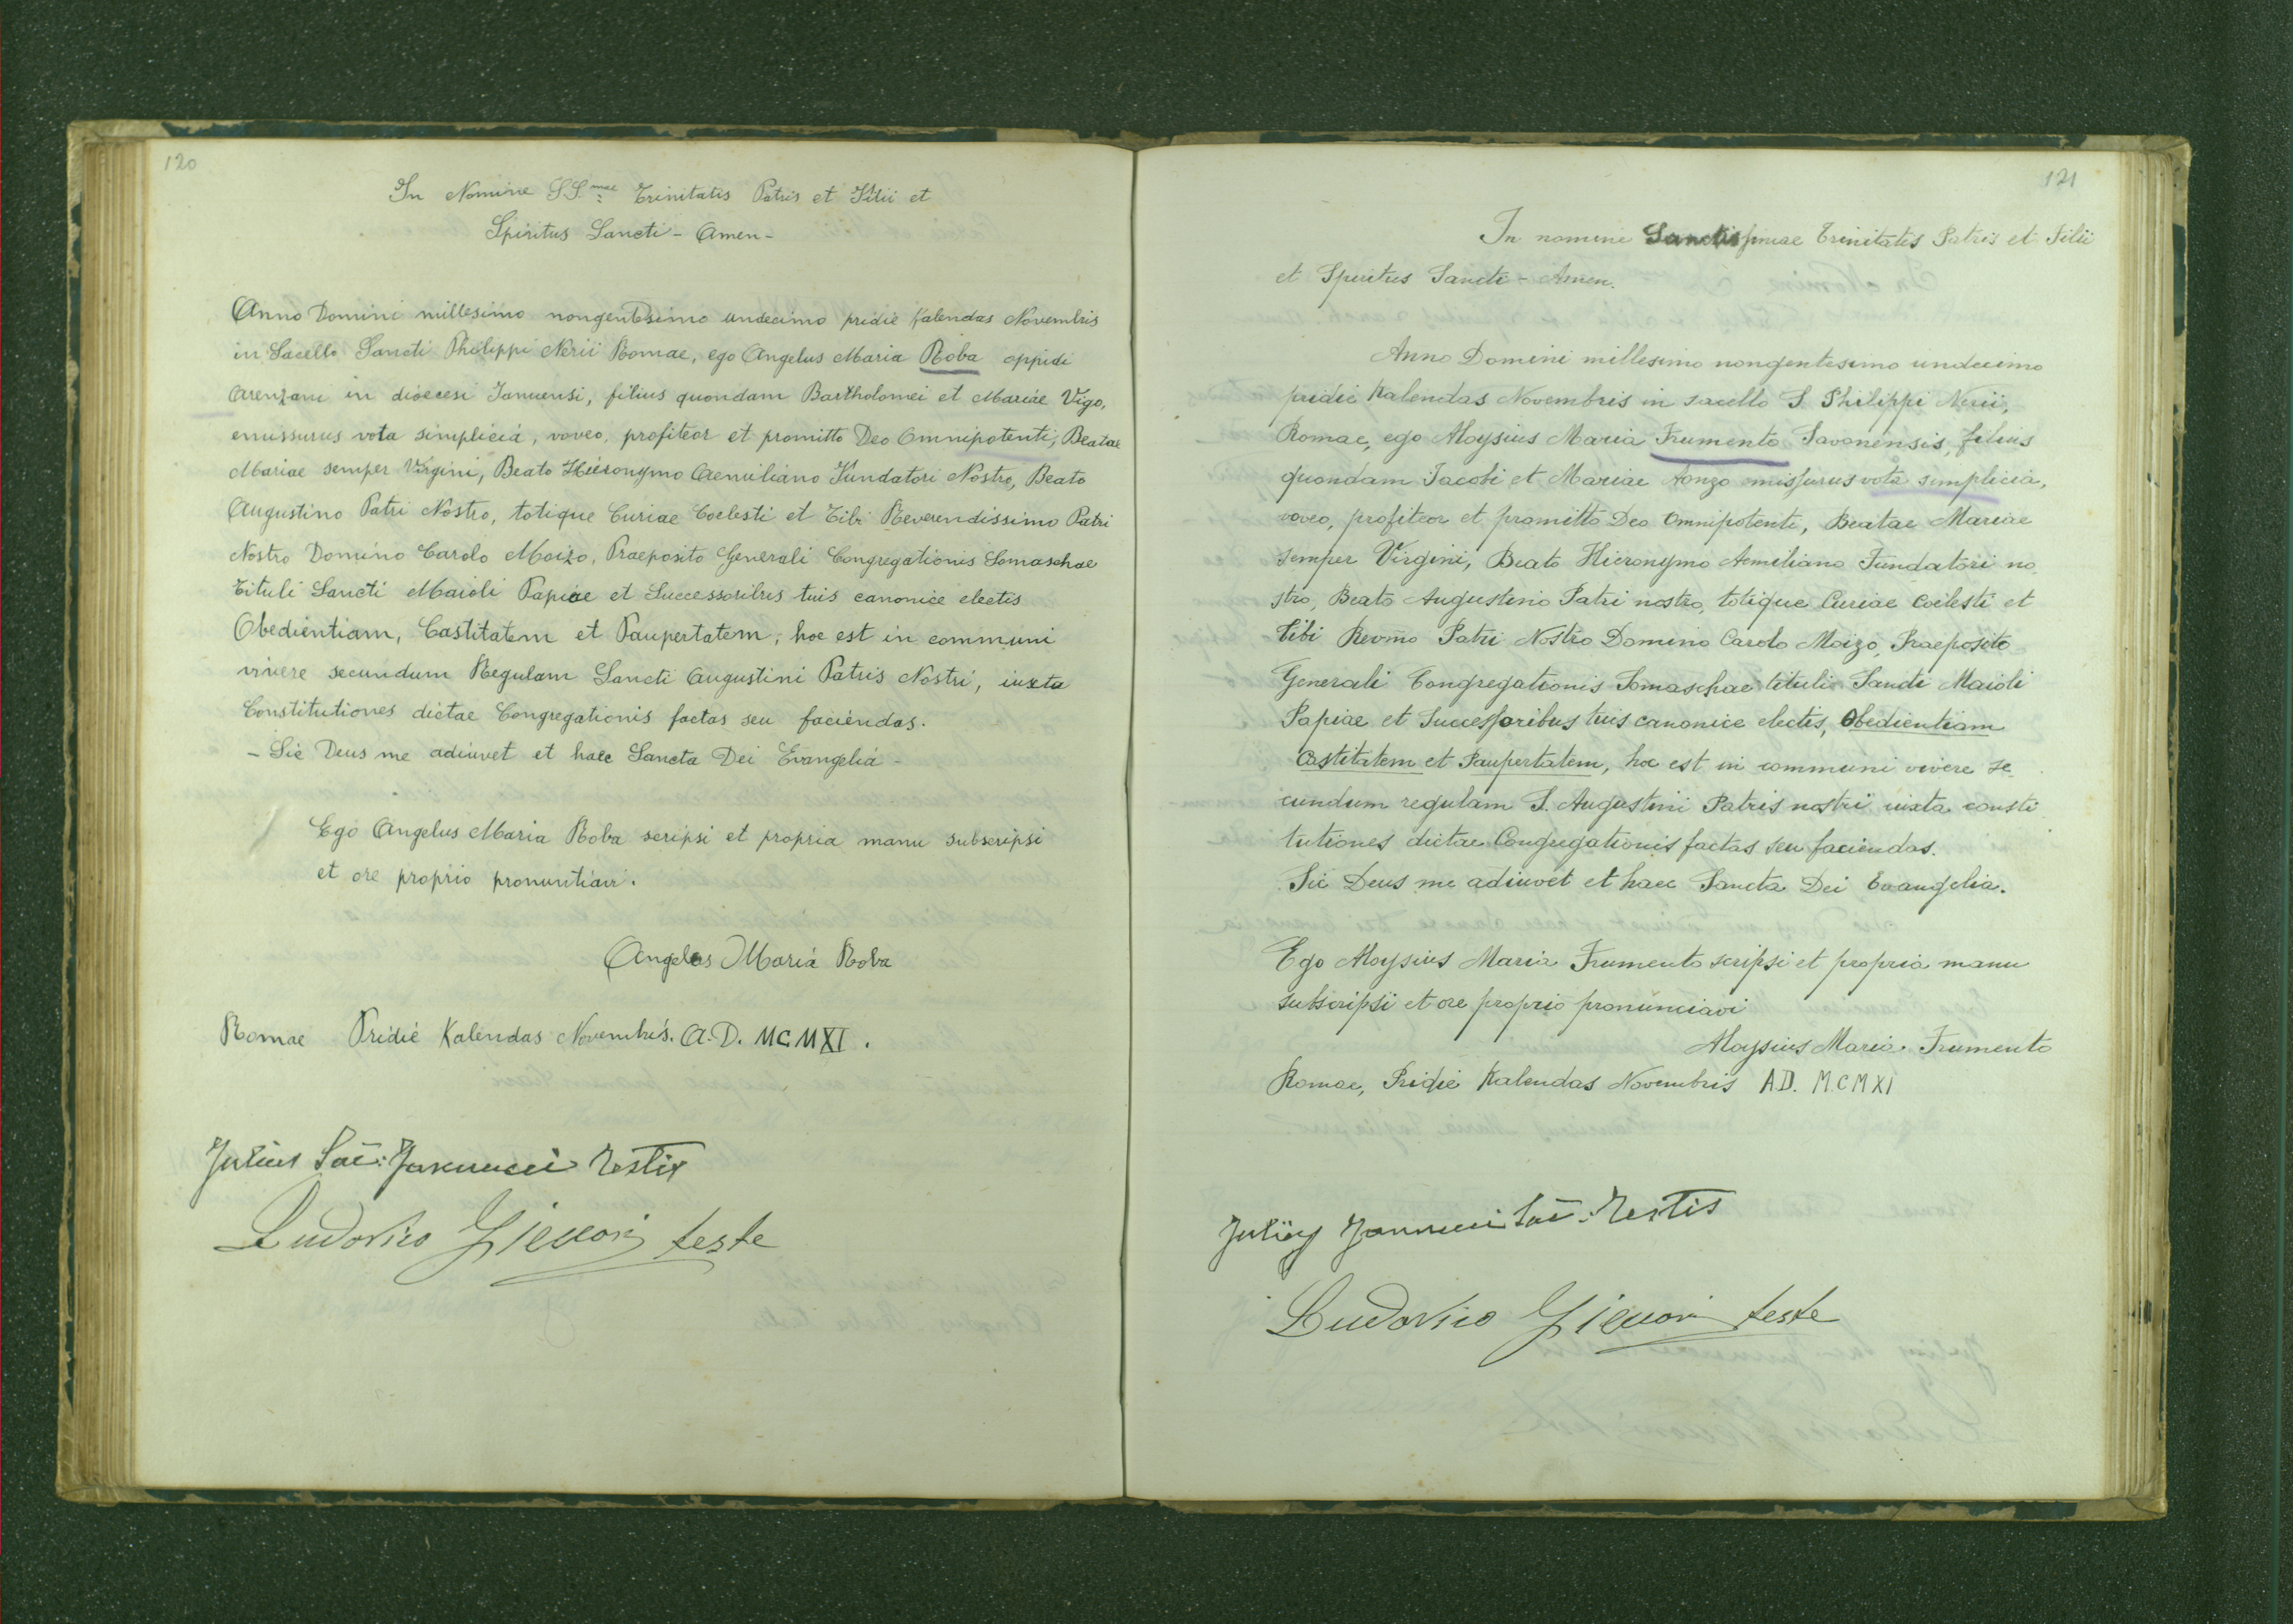 120
In Nomine SS.mae Trinitatis Patris et Filii et
Spiritus Sancti - Amen -
Anno Domini millesimo nongentesimo undecimo pridie Kalendas Novembris
in Sacello Sancti Philippi Nerii Romae, ego Angelus Maria Roba oppidi
Arenzani in dioecesi Januensi, filius quondam Bartholomei et Mariae Vigo,
emissurus vota simplicia, voveo, profiteor et promitto Deo Omnipotenti, Beatae
Mariae semper Virgini, Beato Hieronymo Aemiliano Fundatori Nostro, Beato
Augustino Patri Nostro, totique Curiae Coelesti et Tibi Reverendissimo Patri
Nostro Domino Carolo Moizo, Praeposito Generali Congregationis Somaschae
Tituli Sancti Maioli Papiae et Successoribus tuis canonice electis
Obedientiam, Castitatem et Paupertatem; hoc est in communi
vivere secundum Regulam Sancti Augustini Patris Nostri, iuxta
Constitutiones dictae Congregationis factas seu faciendas.
- Sic Deus me adiuvet et haec Sancta Dei Evangelia -
Ego Angelus Maria Roba scripsi et propria manu subscripsi
et ore proprio pronuntiavi.
Angelus Maria Roba
Romae Pridie Kalendas Novembris. A.D. MCMXI.
Julius Sac: Testis
Ludovico teste
121
In nomine Sanctissimae Trinitatis Patris et Filii
et Spiritus Sancti - Amen.
Anno Domini millesimo nongentesimo undecimo
pridie Kalendas Novembris in sacello S Philippi Nerii,
Romae, ego Aloysius Maria Frumento Savonensis, filius
quondam Jacobi et Mariae Aonzo emissurus vota simplicia,
voveo, profiteor et promitto Deo Omnipotenti, Beatae Mariae
semper Virgini, Beato Hieronymo Aemiliano Fundatori no
stro, Beato Augustino Patri nostro, totique Curiae Coelesti et
tibi Revmo Patri Nostro Domino Carolo Moizo, Praeposito
Generali Congregationis Somaschae tituli Sancti Maioli
Papiae et Successoribus tuis canonice electis, Obedientiam
Castitatem et Paupertatem, hoc est in communi vivere se
cundum regulam S. Augustini Patris nostri iuxta consti
tutiones dictae Congregationis factas seu faciendas.
Sic Deus me adiuvet et haec Sancta Dei Evangelia.
Ego Aloysius Maria Frumento scripsi et propria manu
subscripsi et ore proprio pronunciavi
Aloysius Maria Frumento
Romae, Pridie Kalendas Novembris A.D. M.C.M XI
Julius Sac: Testis
Ludovico teste